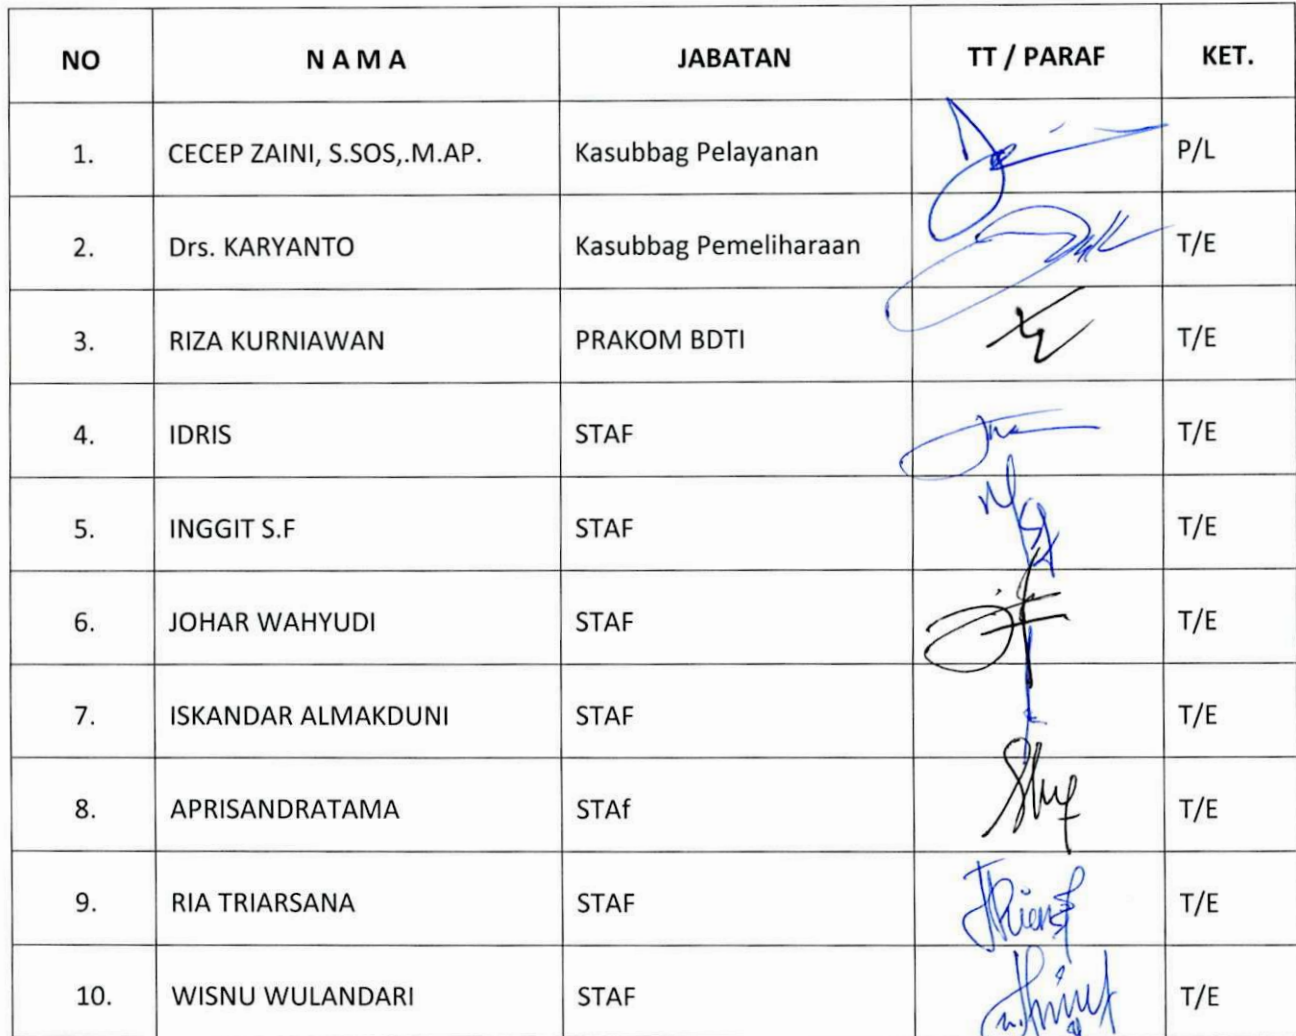 NO N A M A JABATAN TT / PARAF KET.
1. CECEP ZAINI, S.SOS,.M.AP. Kasubbag Pelayanan P/L
2. Drs. KARYANTO Kasubbag Pemeliharaan T/E
3. RIZA KURNIAWAN PRAKOM BDTI T/E
4. IDRIS STAF T/E
5. INGGIT S.F STAF T/E
6. JOHAR WAHYUDI STAF T/E
7. ISKANDAR ALMAKDUNI STAF T/E
8. APRISANDRATAMA STAf T/E
9. RIA TRIARSANA STAF T/E
10. WISNU WULANDARI STAF T/E